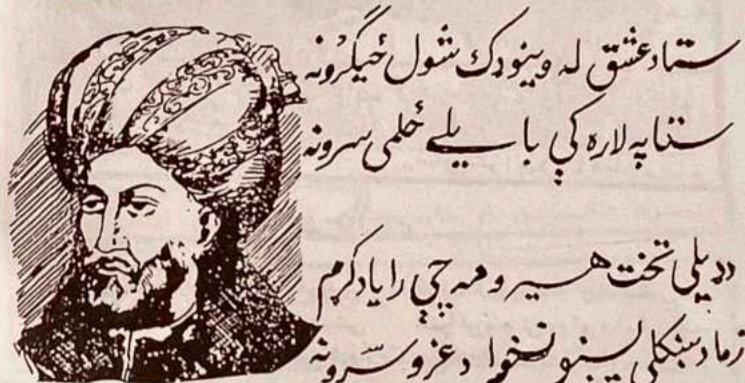 ستا د عشق له وینو ډک شول ځیګرونه
ستا په لاره کې بایلي ځلمی سرونه
د ډیلي تخت هیرومه چې را یاد کړم
زما د ښکلي پښتونخوا د غرو سرونه